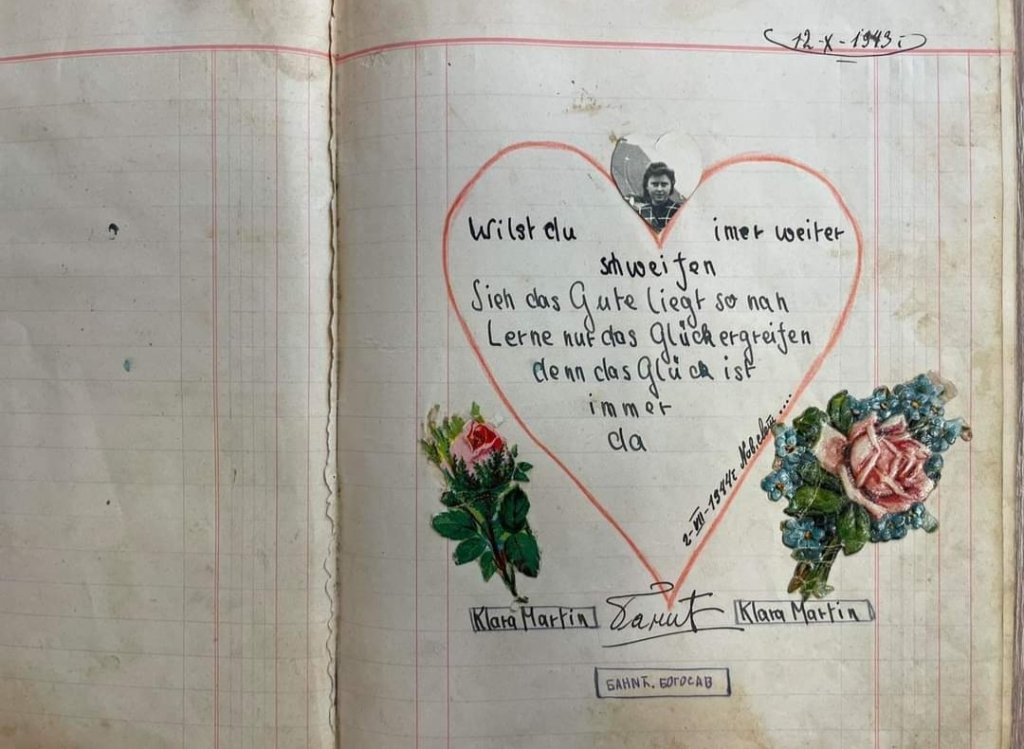 12-X-1943.
Wilst du imer weiter
schweifen
Sieh das Gute liegt so nah
Lerne nur das Glück ergreifen
denn das Glück ist
immer
da
2-VII-1944г.
Klara Martin Банић Klara Martin
БАНИЋ. БОГОСАВ